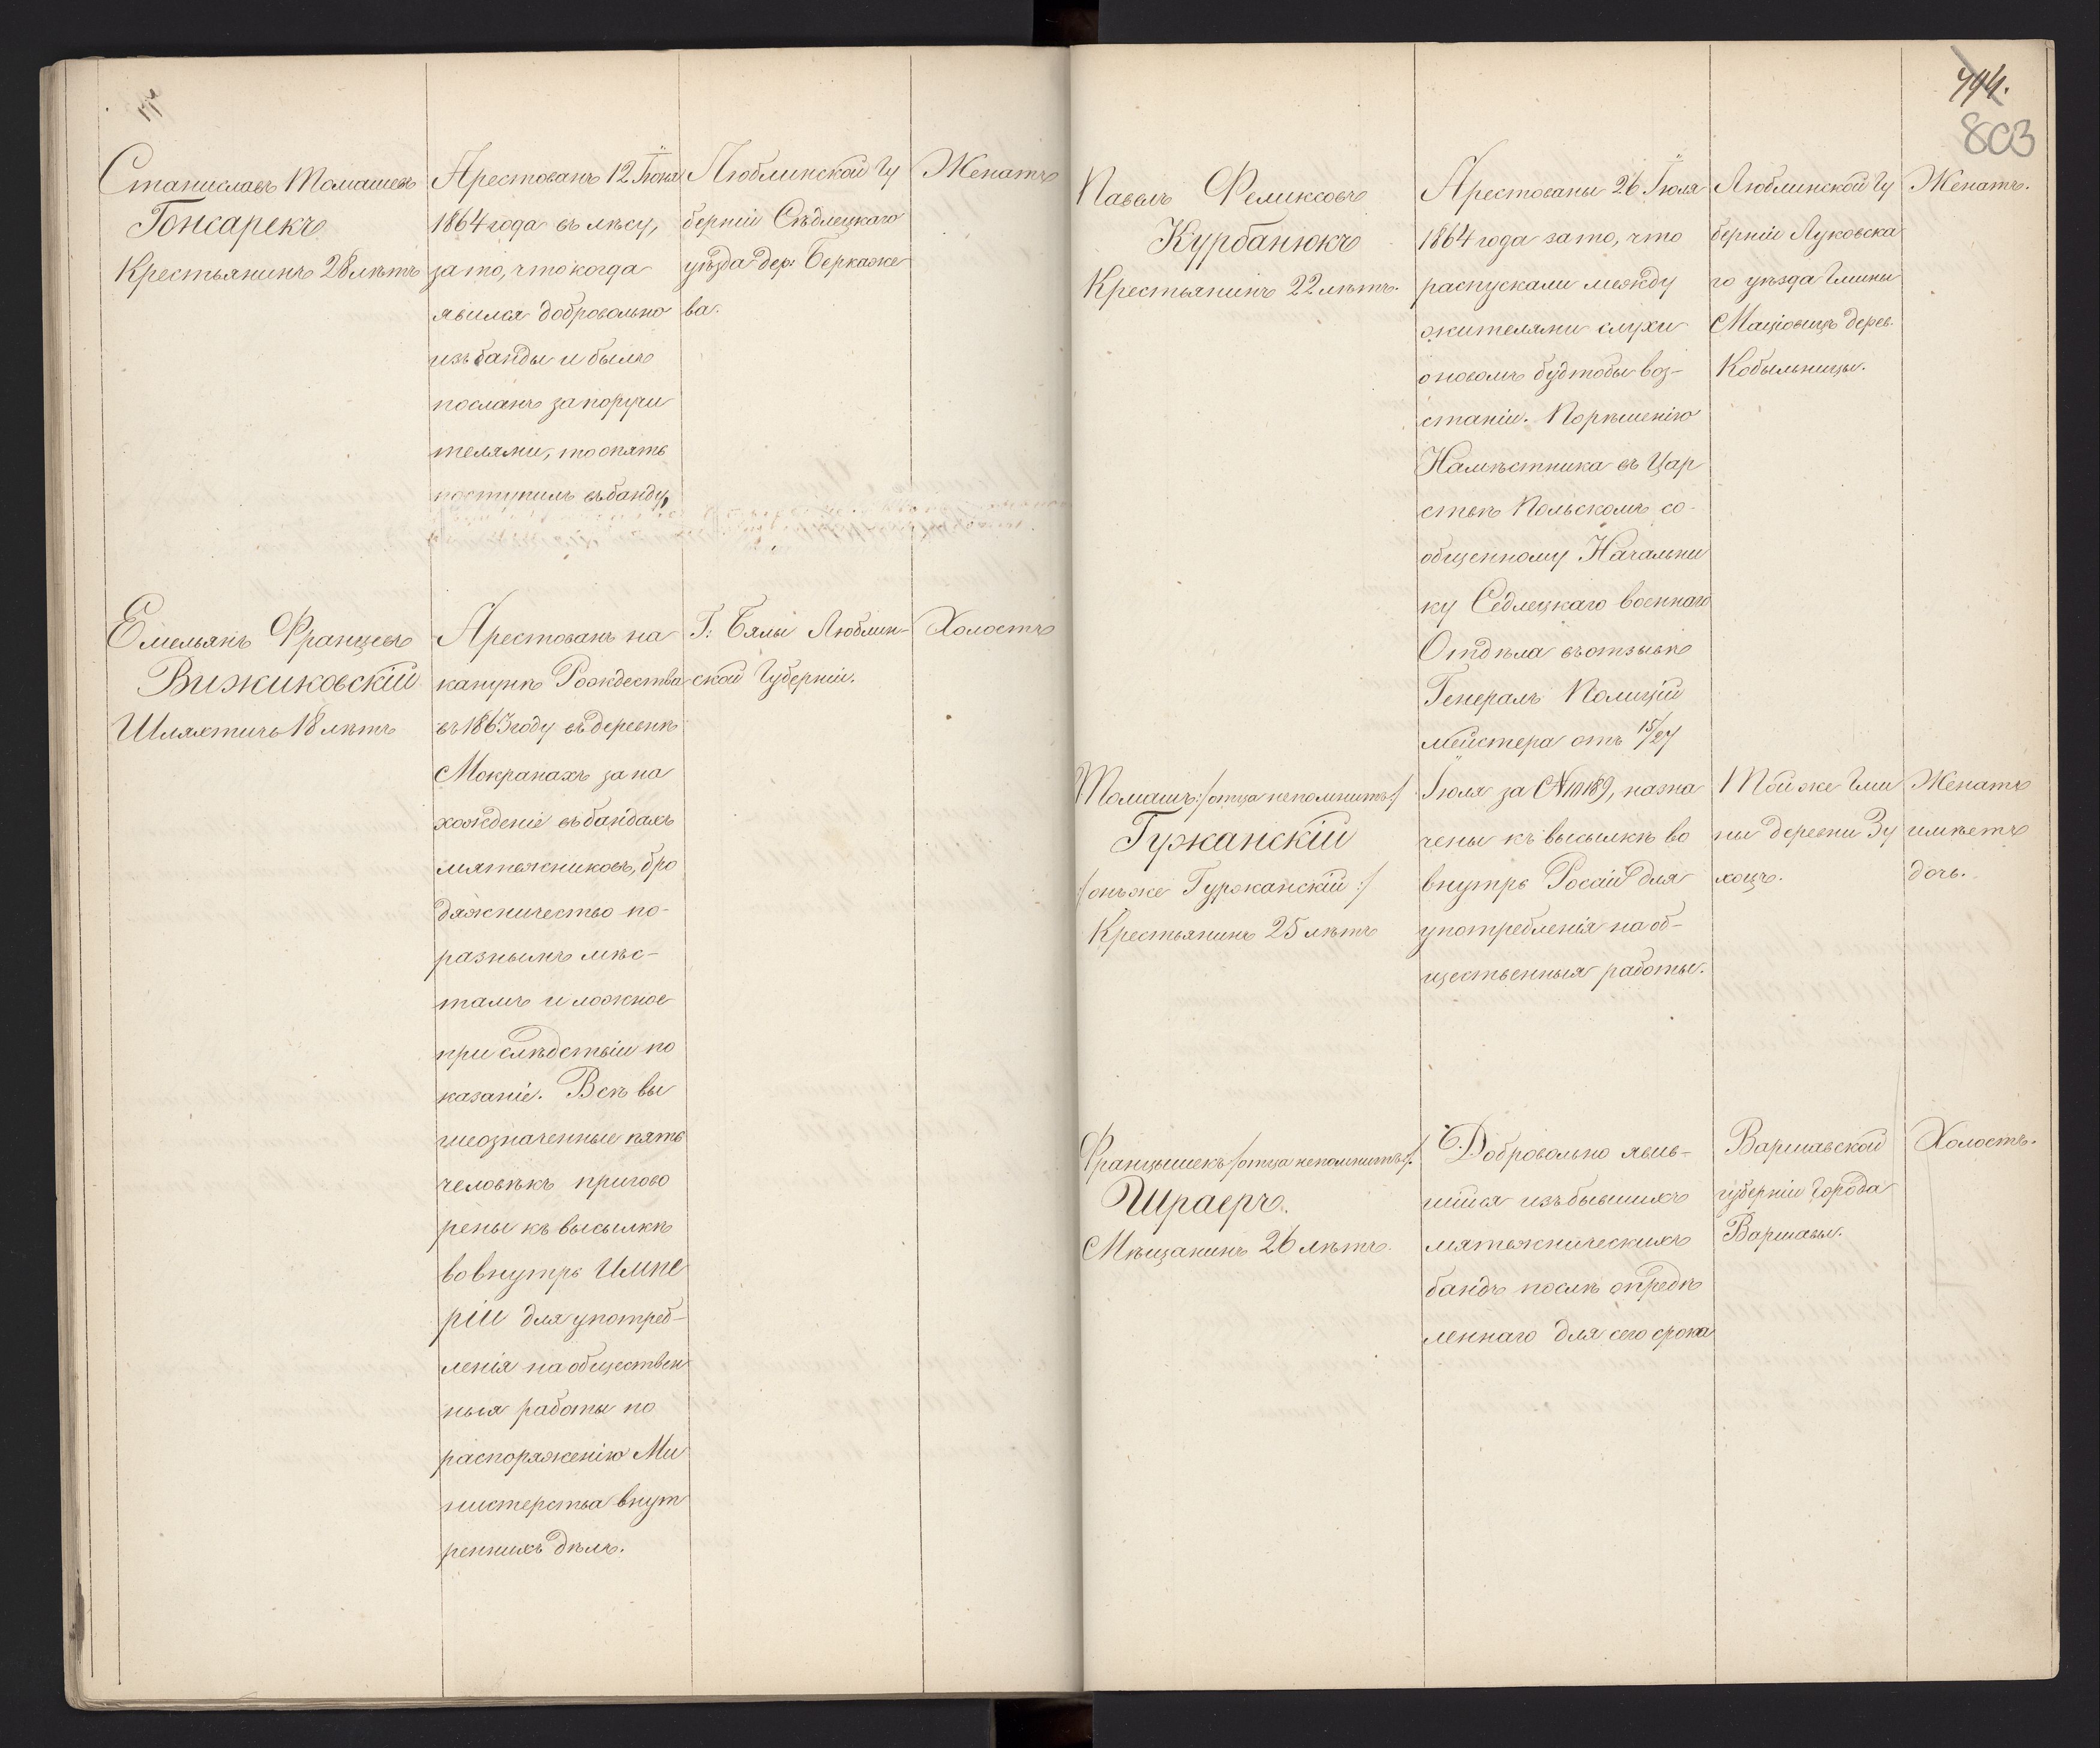 Станиславъ Томашевъ
Гонсарекъ
Крестьянинъ 28 лѣтъ
Арестованъ 12 Іюня
1864 года въ лѣсу,
за то, что когда
явился добровольно
изъ банды и былъ
посланъ за поручи
телями, то опять
поступилъ въ банду,
Люблинской Гу
берніи Сѣдлецкаго
уѣзда дер: Беркаже
ва.
Женатъ
Емельянъ Францевъ
Вижиковскій
Шляхтичъ 18 лѣтъ
Арестованъ на
канунѣ Рождества
въ 1863 году въ деревнѣ
Мокранахъ за на
хожденіе въ бандахъ
мятежниковъ, бро
дяжничество по-
разнымъ мѣс-
тамъ и ложное
при слѣдствіи по
казаніе. Всѣ вы
шеозначенные пять
человѣкъ пригово
рены къ высылкѣ
во внутрь Импе
ріи для употреб-
ленія на обществен
ныя работы по
распоряженію Ми
нистерства внут
реннихъ дѣлъ.
Г: Бялы Люблин-
ской Губерніи.
Холостъ
744.
803
Павелъ Феликсовъ
Курбанюкъ
Крестьянинъ 22 лѣтъ.
Арестованы 26 Іюля
1864 года за то, что
распускали между
жителями слухи
о новомъ будтобы воз-
станіи. По рѣшенію
Намѣстника въ Цар
ствѣ Польскомъ со-
общенному Начальни
ку Седлецкаго военнаго
Отдѣла въ отзывѣ
Генералъ Полиціи
мейстера отъ 15/27
Іюля за № 10189, назна
чены къ высылкѣ во
внутрь Россіи для
употребленія на об-
щественныя работы.
Люблинской Гу
берніи Луковска
го уѣзда Гмины
Маціовицъ дерев.
Кобыльницы.
Женатъ.
Томашъ /:отца непомнитъ:/
Гужанскій
/:онъ же Гуржанскій:/
Крестьянинъ 25 лѣтъ
Той же Гми
ны деревни Зу
хоцъ.
Женатъ
имѣетъ
дочь.
Францышекъ /:отца непомнитъ:/
Шраеръ.
Мѣщанинъ 26 лѣтъ.
Добровольно явив-
шійся изъ бывшихъ
мятежническихъ
бандъ послѣ опредѣ
леннаго для сего срока
Варшавской
губерніи города
Варшавы.
Холостъ.